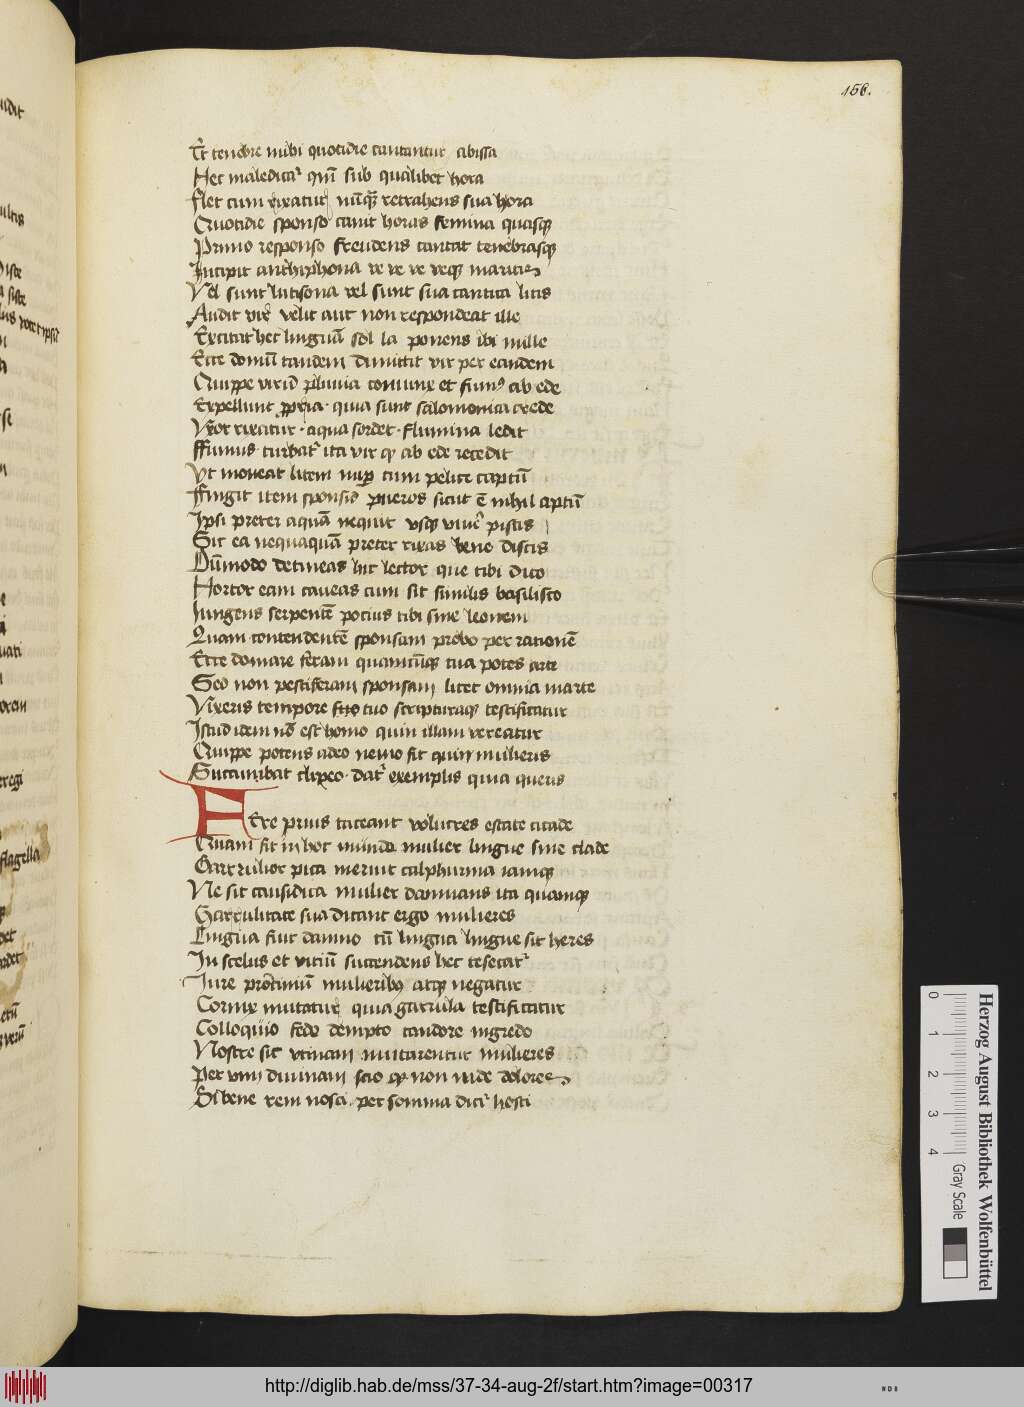 156.
Et tenebre michi quotidie cantantur abissa
Hec maledicit᷑ qm̄ sub qualibet hora
Flet cum rixatur nūq̄ꝫ retrahens sua hora
Quotidie sponso canit horas femina quasqꝫ
Primo responso frendens cantat tenebrasqꝫ
Incipit anthiphona ve ve ve veqꝫ maritis
Vel sunt lutisona vel sunt sua cantica litis
Audit vir velit aut non respondeat ille
Excitat hec linguā sol la ponens ibi mille
Ecce domū tandem dimittit vir per eandem
Quippe virū pluuia coniunx et fumꝰ ab ede
Expellunt ꝓpria quia sunt salomonica crede
Vxor rixatur aqua sordet flumina ledit
Ffumus turbat᷑ ita vir qꝫ ab ede recedit
Vt moueat litem nuꝑ cum pelice captū
Ffingit item sponsus pueros sicut ē nihil aptū
Ipsi preter aquā nequit vsqꝫ viue᷑ piscis
Sic ea nequaquā preter rixas bene discis
Dūmodo detineas hic lector que tibi dico
Hortor eam caueas cum sit similis basilisco
Iungens serpentē pocius tibi siue leonem
Quam contendentē sponsam probo per rationē
Ecce domare feram quamcūqꝫ tua potes arte
Sed non pestiferam sponsam licet omnia marte
Viceris tempore tuo scripturaqꝫ testificatur
Istud idem nō est homo quin illam vereatur
Quippe potens adeo nemo sit quin mulieris
Succumbat clipeo dat᷑ exemplis quia queris
Fere prius taceant volucres estate cicade
Quam sit in hoc mundo mulier lingue sine clade
Garrulior pica meruit calphurnia iamqꝫ
Ne sit causidica mulier damnans ita quamqꝫ
Garrulitate sua dicant ergo mulieres
Lingua fuit damno cū lingua lingue sit heres
In scelus et vitiū succendens hec resecat᷑
Iure procinniū mulieribꝫ atqꝫ negatur
Cornix mutatur quia garrula testificatur
Colloquio fedo dempto candore nigredo
Nostre sic vtinam mutarentur mulieres
Per vim diuinam scio qꝫ non inde doleres
Si bene rem nosci per somnia dici᷑ hosti
Herzog August Bibliothek Wolfenbüttel
0 1 2 3 4
Gray Scale
http://diglib.hab.de/mss/37-34-aug-2f/start.htm?image=00317